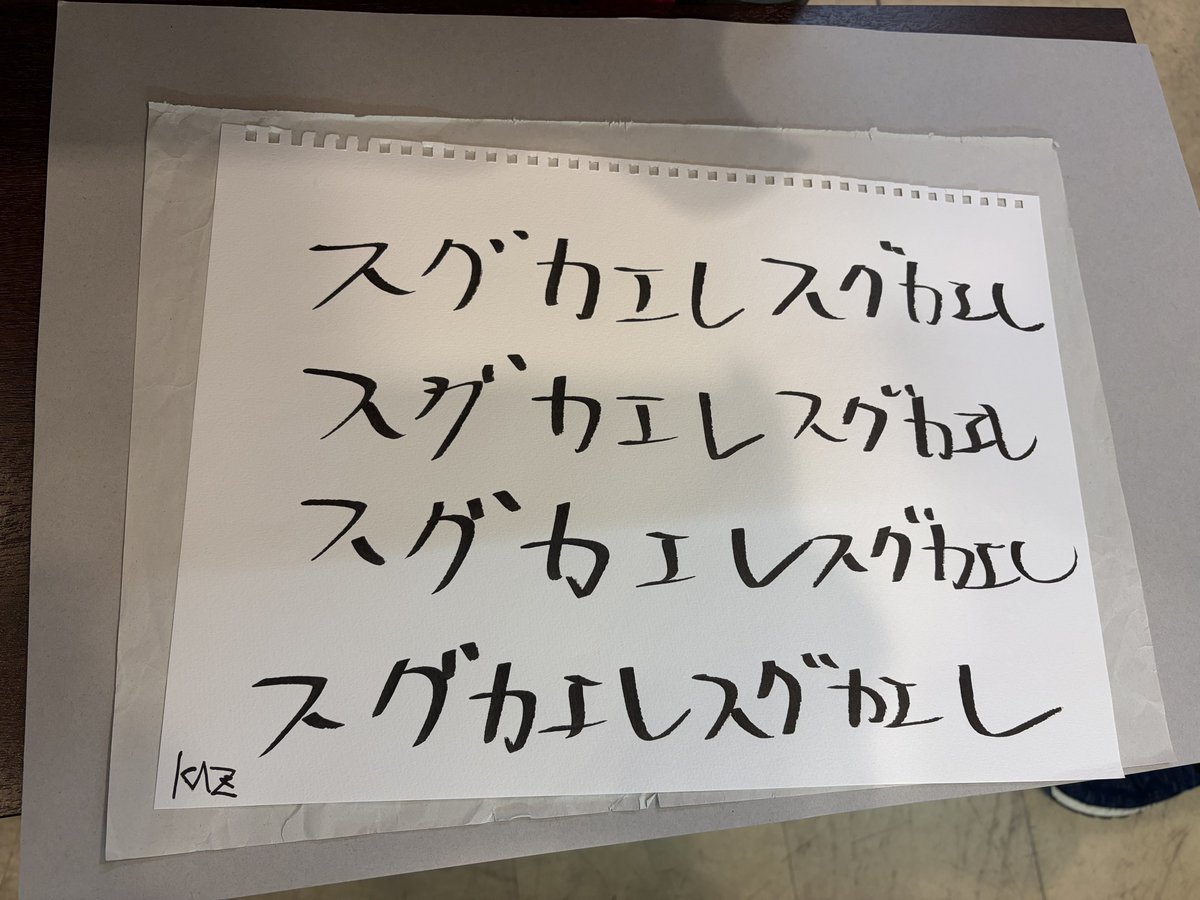 スグカエレスグカエレ
スグカエレスグカエレ
スグカエレスグカエレ
スグカエレスグカエレ
KAZ